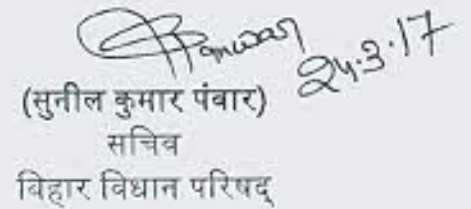 Panwar
24.3.17
(सुनील कुमार पंवार)
सचिव
बिहार विधान परिषद्